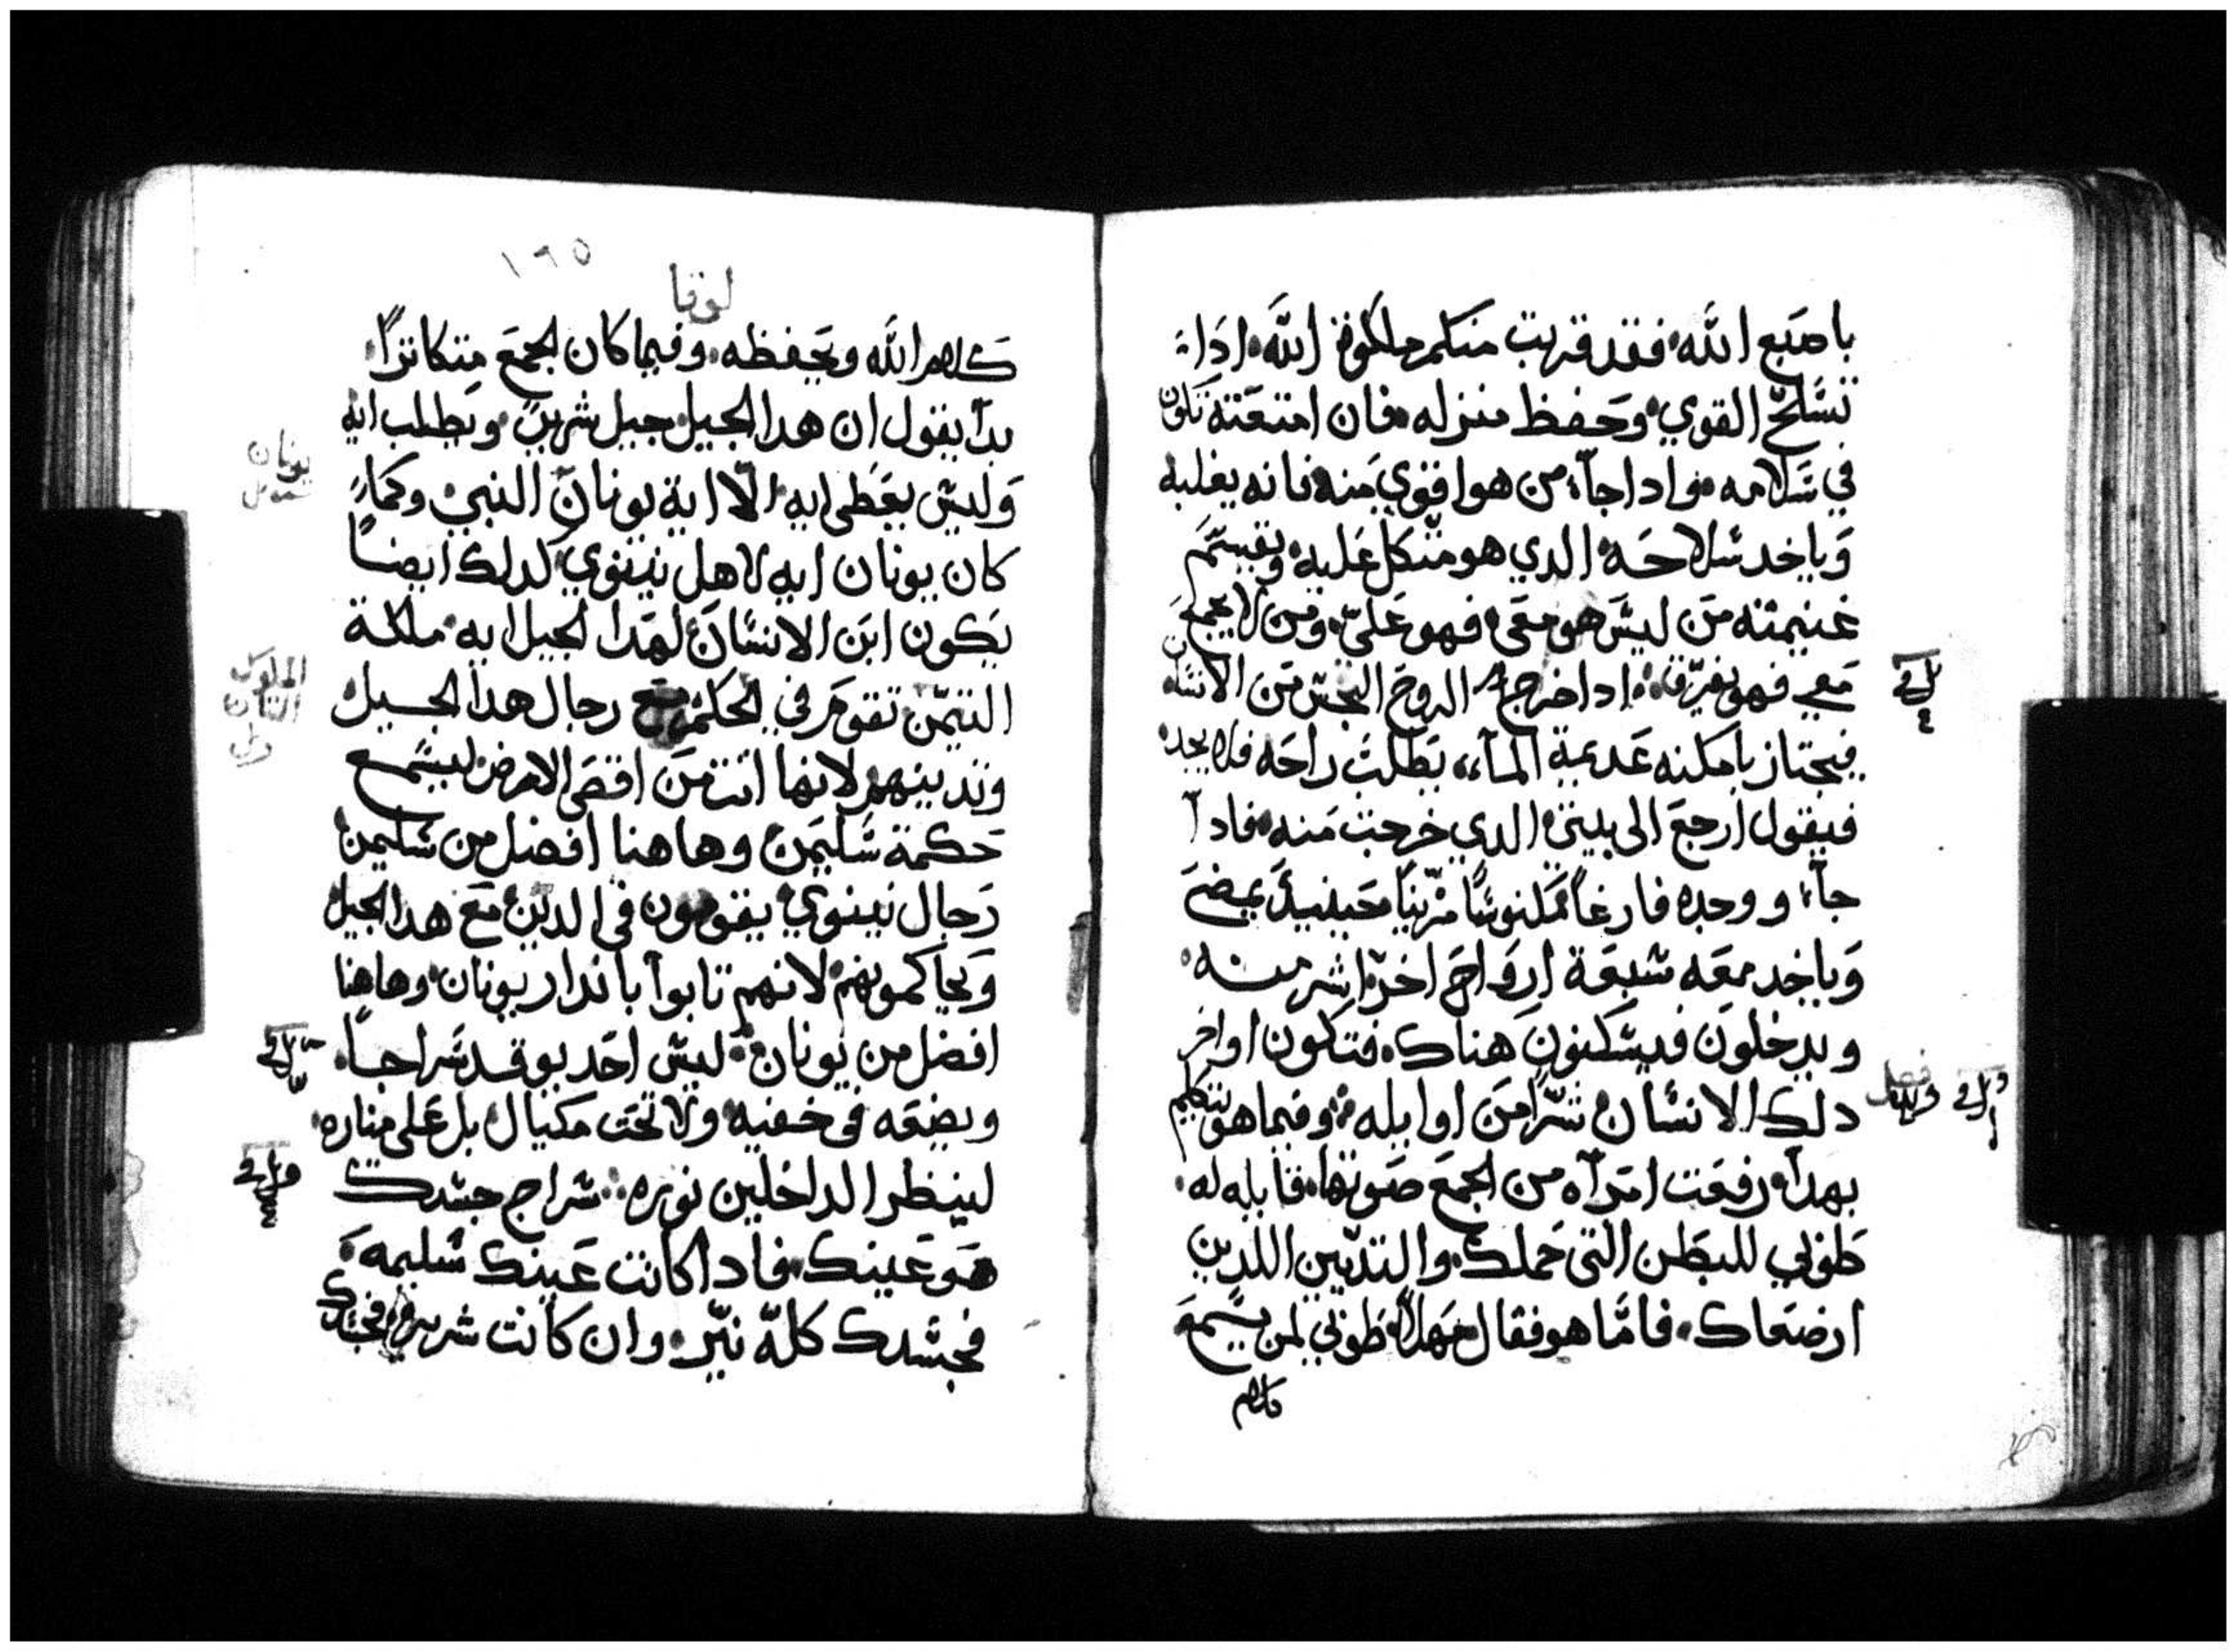 باصبع الله فقد قربت منكم ملكوت الله اداء
تسلح القوي وحفظ منزله فان امتعته تكون
في سلامه واداجآء من هوا قوي منه فانه يغلبه
وياخد سلاحه الدي هو متكل عليه ويقسم
غنيمته من ليس هو معي فهو علي ومن لا يجمع
معي فهو يفرق ادا خرج الروح النجس من الانسان
فيجتاز بامكنه عديمة المآء يطلب راحه فلا يجده
فيقول ارجع الى بيتي الدي خرجت منه فادآ
جآء ووجده فارغاً مكنوساً مزيناً حينيد يمضي
وياخد معه سبعة ارواح اخر اشر منه
ويدخلون فيسكنون هناك فتكون اواخر
دلك الانسان شراً من اوايله وفيما هو يتكلم
بهدآ رفعت امرآه من الجمع صوتها قايله له
طوبي للبطن التي حملك والتديين اللدين
ارضعاك فامّا هو فقال مهلاً طوبي لمن يسمع
كلام
١٩٥
لوقا
كلام الله ويحفظه وفيما كان الجمع متكاتراً
بدآ يقول ان هدا الجيل جيل شرير ويطلب ايه
وليس يعطى ايه الّا اية يونان النبي وكما
كان يونان ايه لاهل نينوي كدلك ايضاً
يكون ابن الانسان لهدا الجيل ايه ملكة
التيمن تقوم في الحكم مع رجال هدا الجيل
وتدينهم لانها اتت من اقصى الارض ليسمع
حكمة سليمن وهاهنا افضل من سليمن
رجال نينوي يقومون في الدين مع هدا الجيل
ويحاكمونهم لانهم تابوآ باندار يونان وهاهنا
افضل من يونان ليس احد يوقد سراجاً
ويضعه في خفيه ولا تحت مكيال بل على مناره
لينظر الداخلين نوره سراج جسدك
هو عينك فادا كانت عينك سليمه
فجسدك كلّه نيّر وان كانت شريره فجسدك
يونان
الملوك
فصل